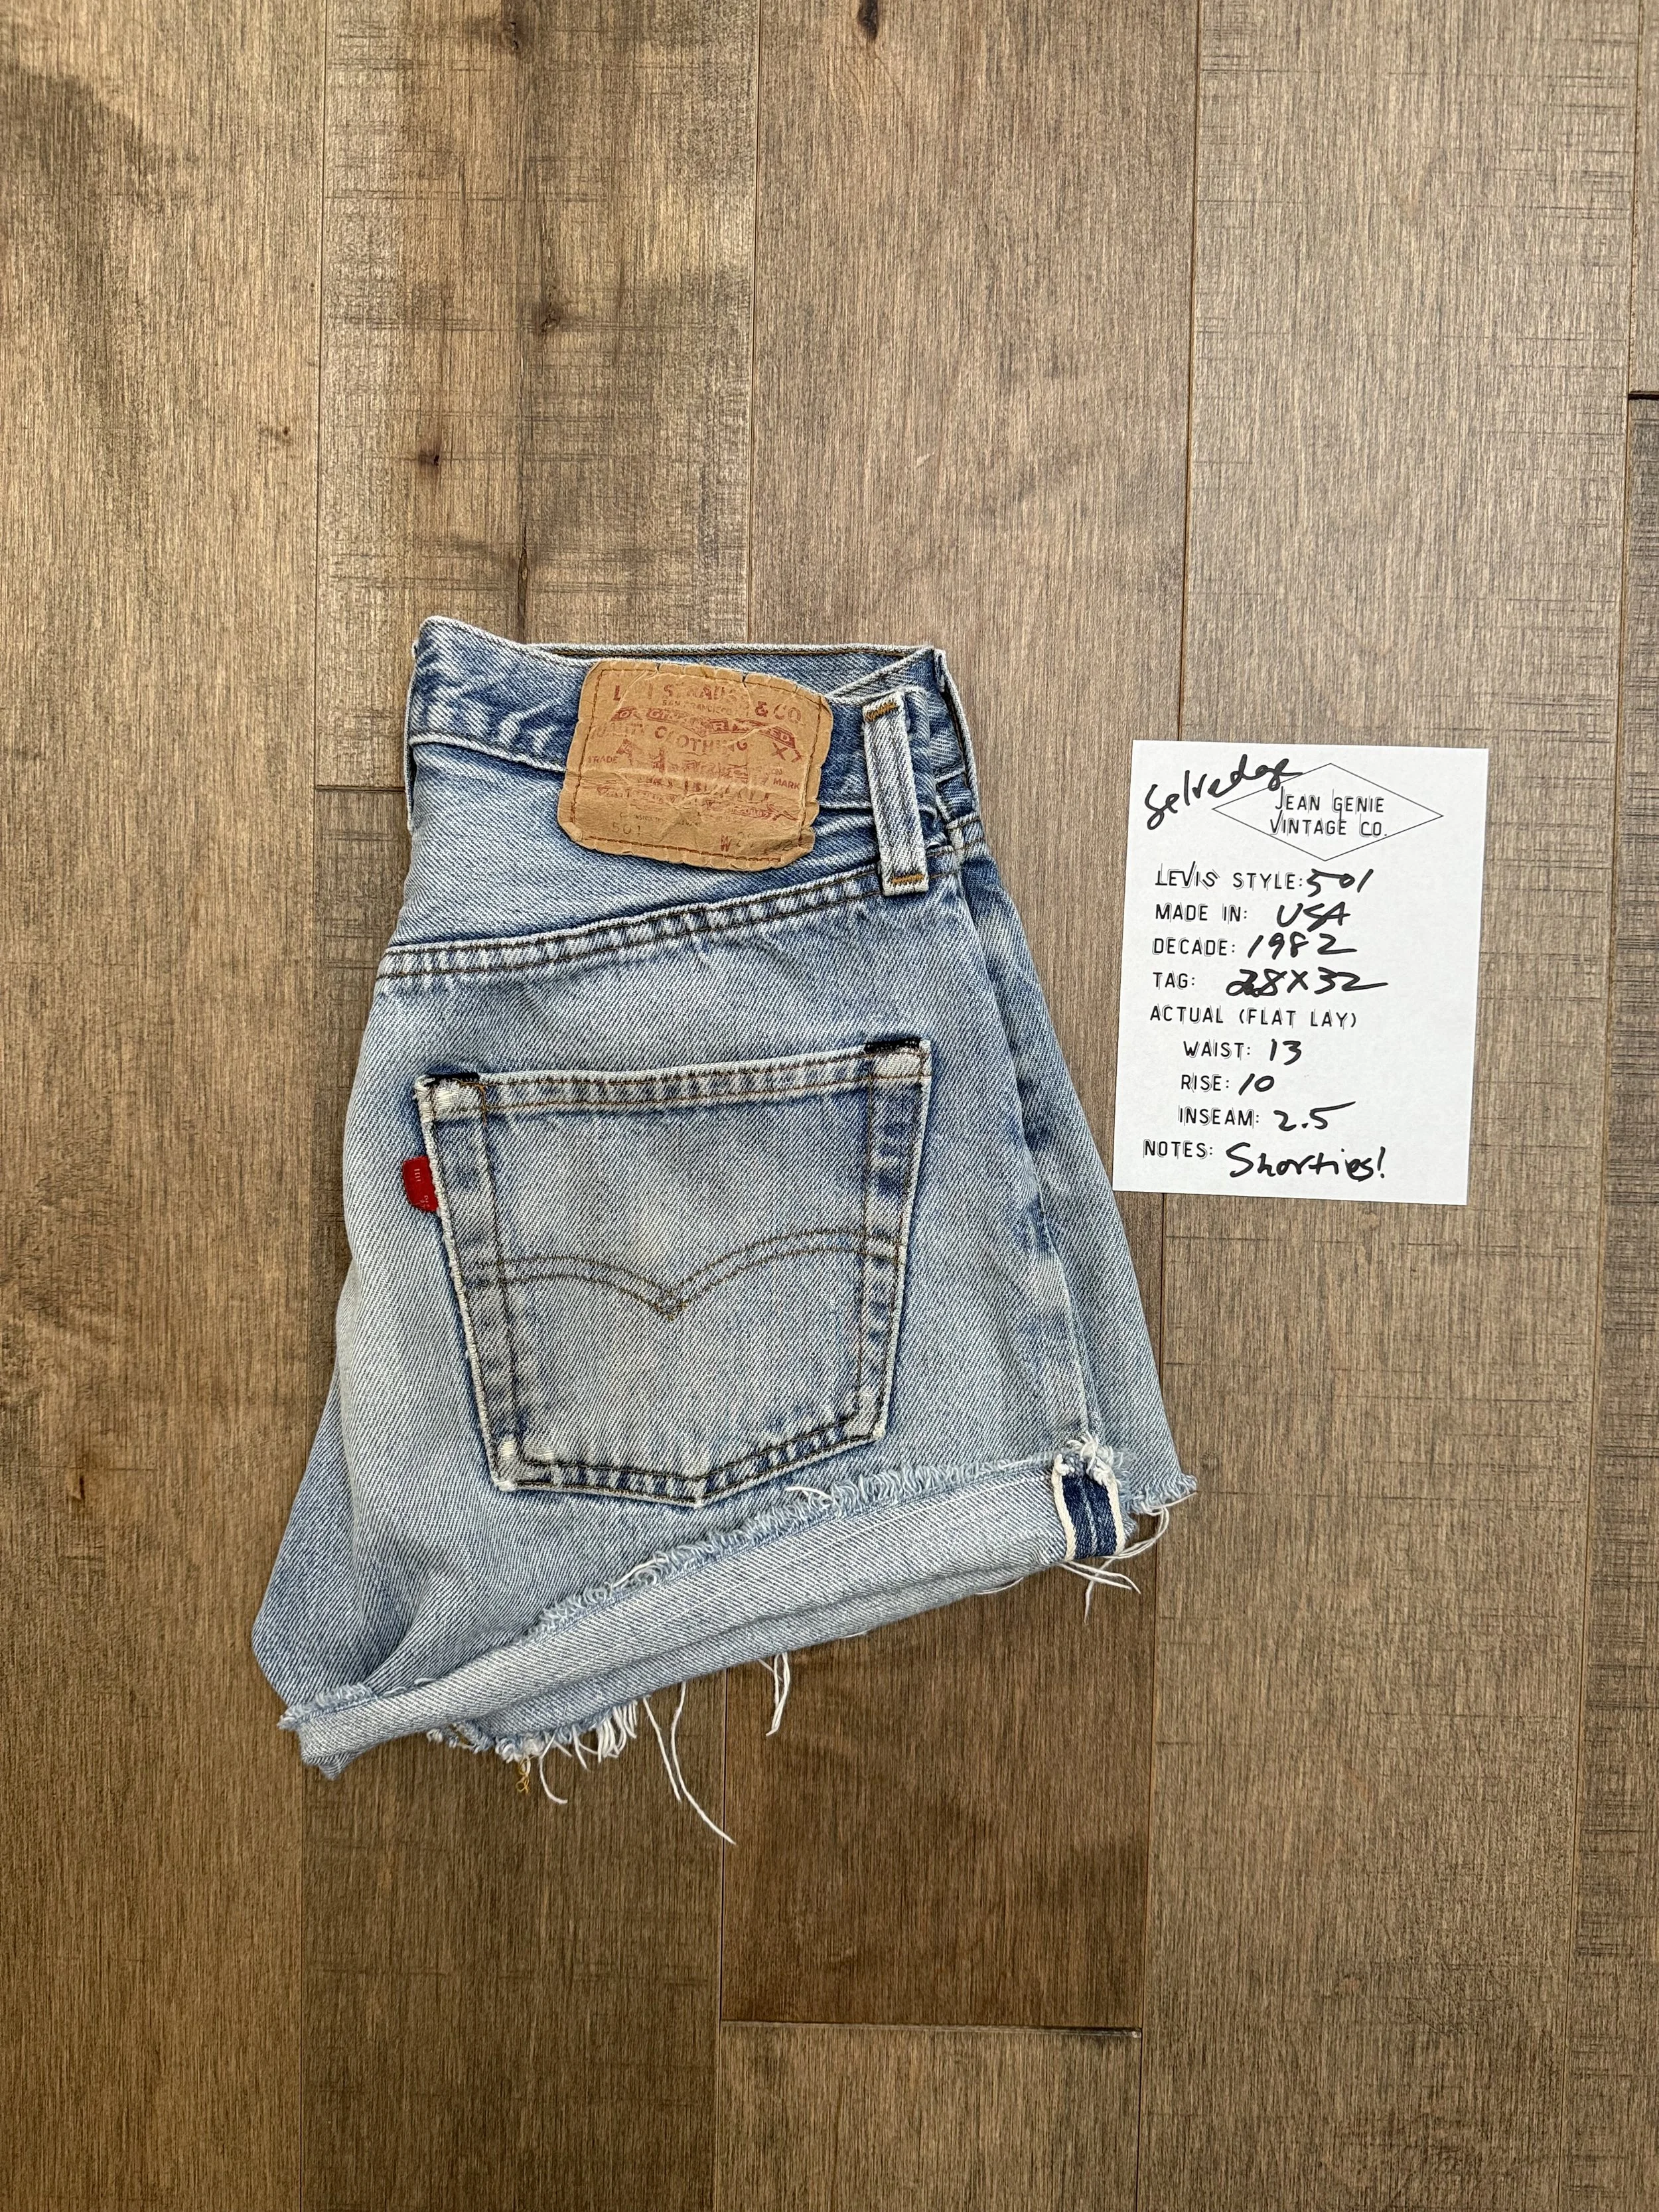 STRAUSS & CO
SAN FRANCISCO
CLOTHING
TRADE MARK
501
W
Selvedge
JEAN GENIE
VINTAGE CO.
LEVIS STYLE: 501
MADE IN: USA
DECADE: 1982
TAG: 28X32
ACTUAL (FLAT LAY)
WAIST: 13
RISE: 10
INSEAM: 2.5
NOTES: Shorties!